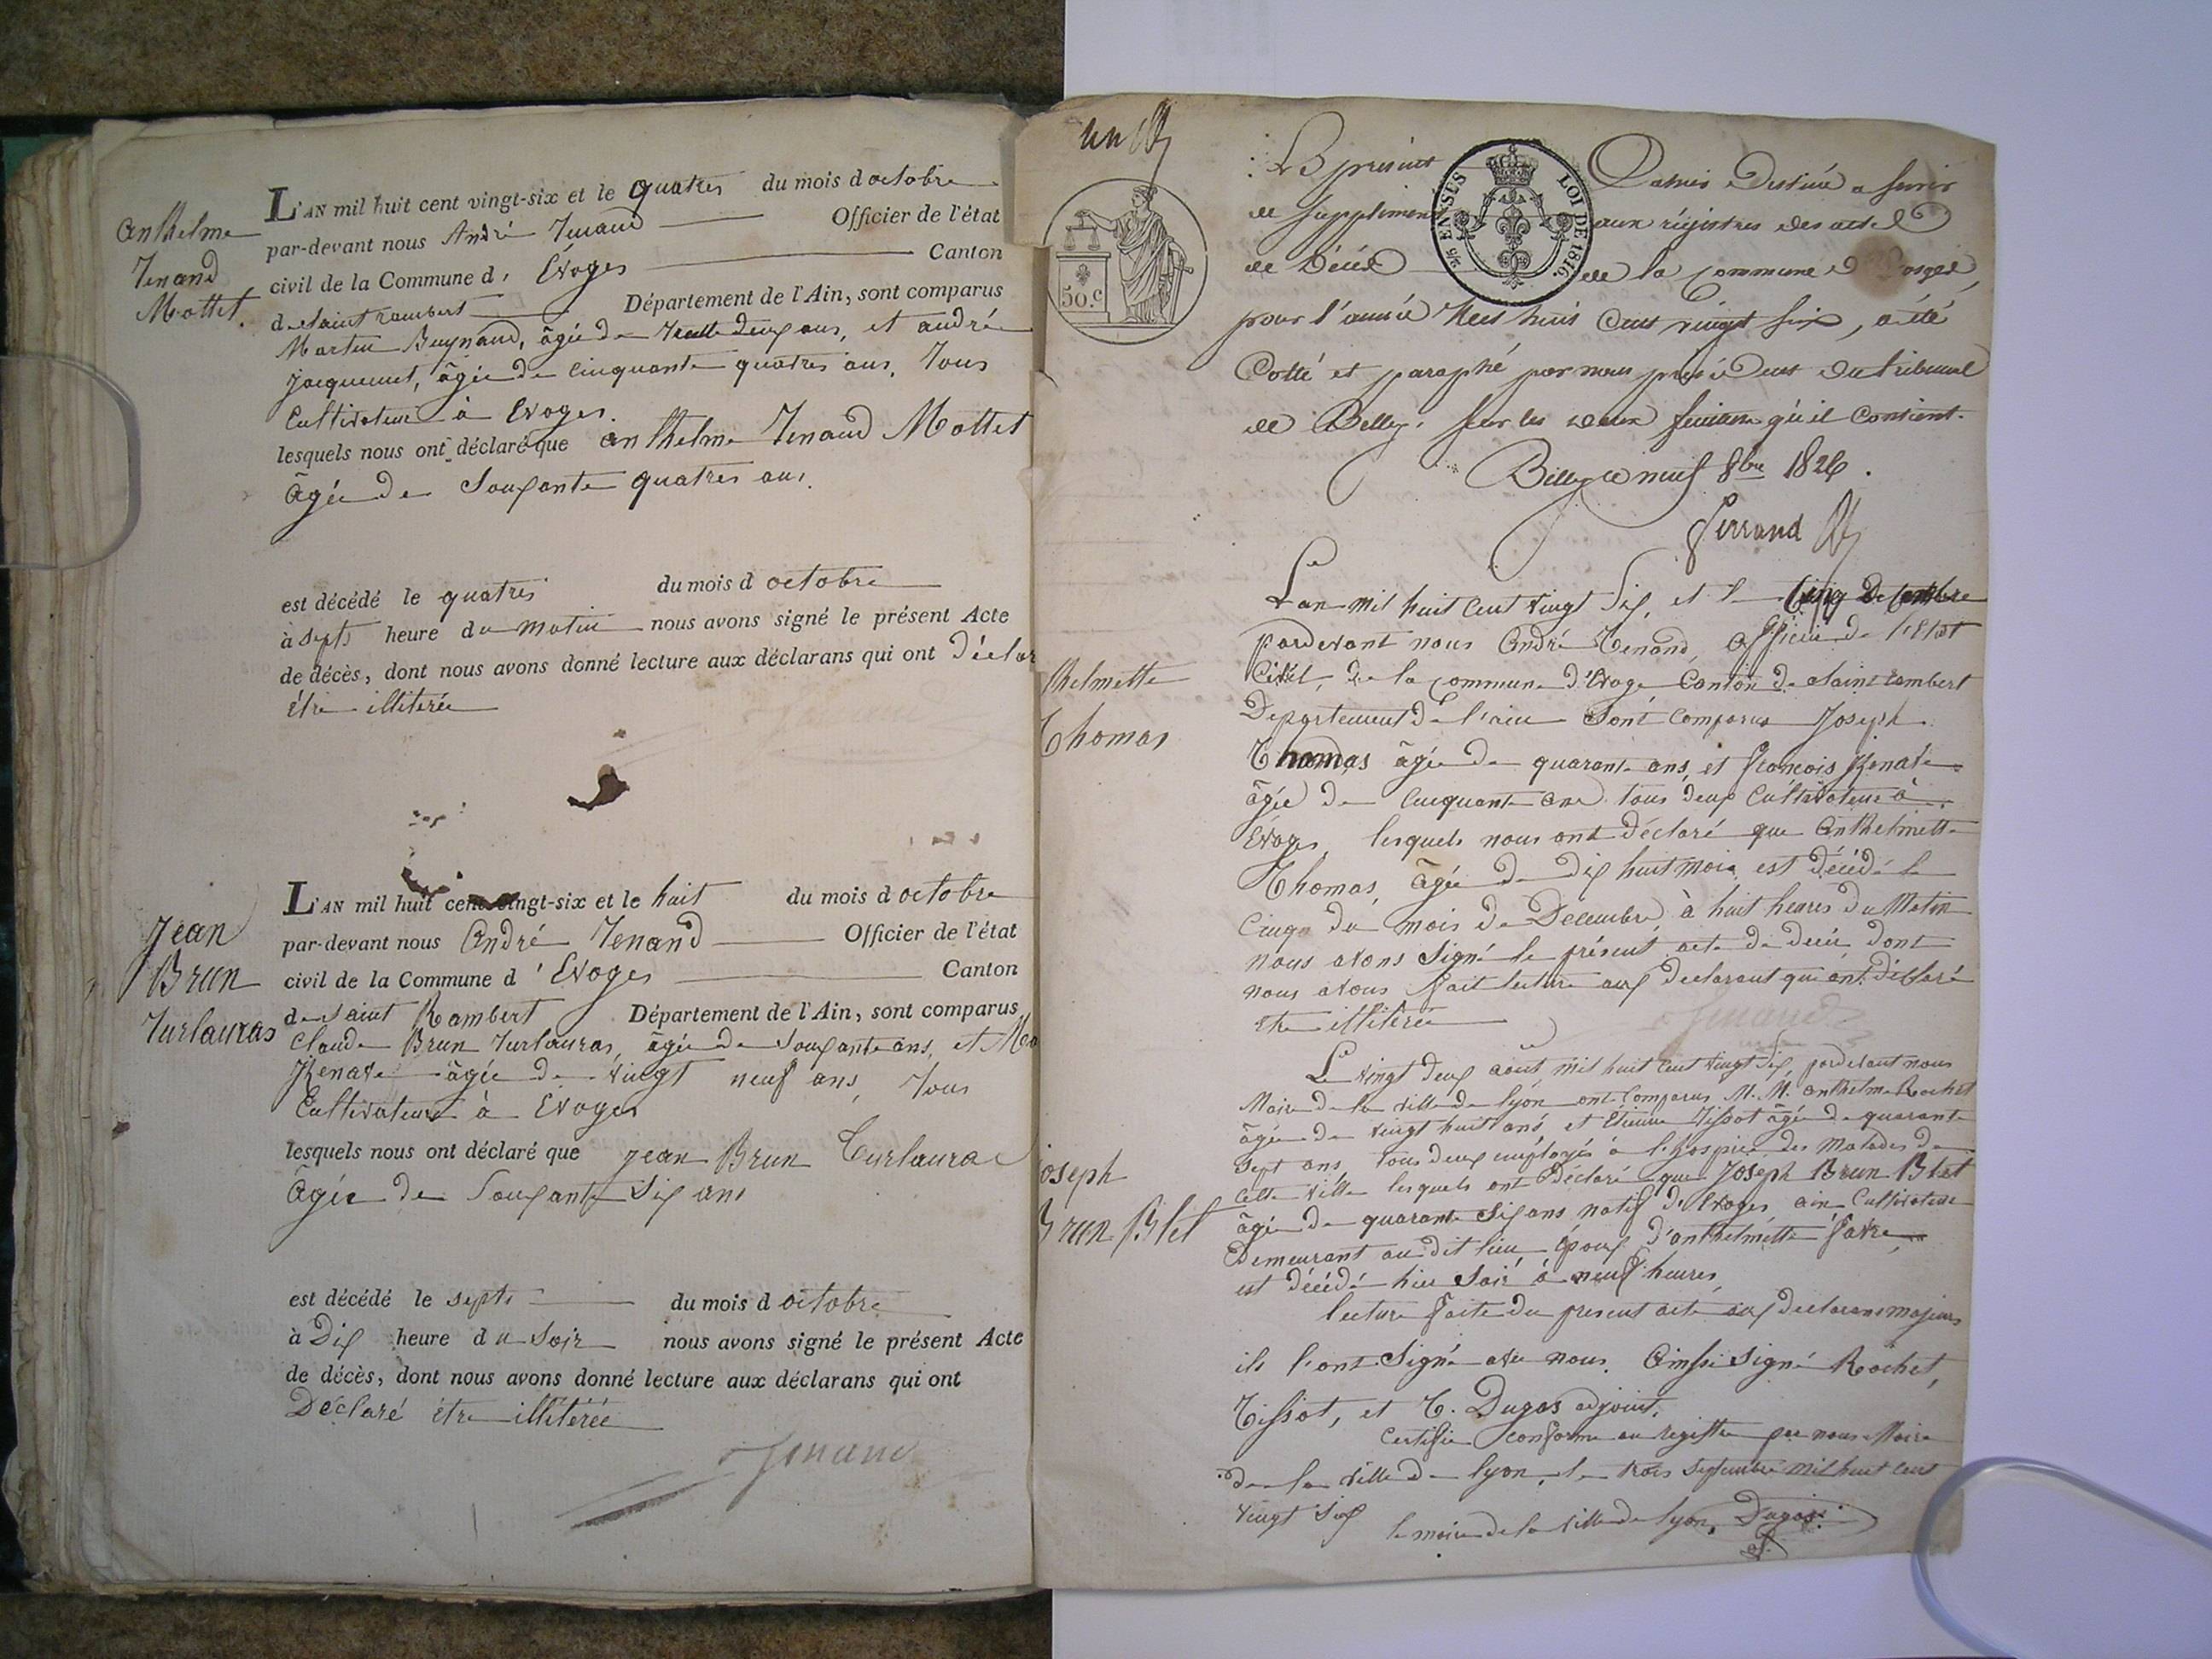 Anthelme
Tenand
Mottet.
L'AN mil huit cent vingt-six et le quatres du mois d octobre
par-devant nous André Tenand Officier de l'état
civil de la Commune d' Evoges Canton
de Saint rambert Département de l'Ain, sont comparus
Martin Buynand, âgée de trente deux ans, et andré
Jacquemet, âgée de Cinquante quatres ans, tous
Cultivateur à Evoges.
lesquels nous ont déclaré que anthelme Tenand Mottet
âgée de Soixante quatres ans.
est décédé le quatres du mois d octobre
à Septs heure du matin nous avons signé le présent Acte
de décès, dont nous avons donné lecture aux déclarans qui ont Déclar
être illiterée
Jean
Brun
Turlauras
L'AN mil huit cent vingt-six et le huit du mois d octobre
par-devant nous André Tenand Officier de l'état
civil de la Commune d ' Evoges Canton
de Saint Rambert Département de l'Ain, sont comparus
Claude Brun Turlauras, âgée de Soixante ans, et
Renave âgée de vingt neuf ans, tous
Cultivateurs à Evoges
lesquels nous ont déclaré que Jean Brun Turlauras
âgée de Soixante Six ans
est décédé le septs du mois d octobre
à Dix heure du Soir nous avons signé le présent Acte
de décès, dont nous avons donné lecture aux déclarans qui ont
Déclaré être illitérée
Tenand
un
50.c
EN SUS
LOI DE 1816.
Le présent Cahier Destiné a servir
de Supplément aux régistres des actes
de Décès de la Commune d'Evoges,
pour l'année Mil huit Cent vingt six, a été
Cotté et paraphé par nous président du tribunal
de Belley, sur les deux feuillets qu'il Contient.
Belley le neuf 8bre 1826.
Ferrand
thelmette
Thomas
L'an mil huit Cent vingt Six, et le Cinq Decembre
pardevant nous André Tenand, Officier de l'Etat
Civil, de la Commune d'Evoges Canton de Saint rambert
Département de l'ain Sont Comparus Joseph
Thomas âgée de quarante ans, et François Renave
âgée de Cinquante ans tous deux Cultivateur à
Evoges, lesquels nous ont déclaré que Anthelmette
Thomas, âgée de dix huit mois, est décédé le
Cinq du mois de Décembre, à huit heures du Matin
nous avons Signé le présent acte de décès dont
nous avons fait lecture aux declarant qui ont déclaré
être illitérée
Tenand
Joseph
Brun Blet
Le vingt deux aout mil huit cent vingt Six, pardevant nous
Maire de la ville de lyon ont Comparus M. M. Anthelme Rochet
âgée de vingt huit ans, et Etienne Tissot âgée de quarante
Sept ans, tous deux employés à l'hospice des Malades de
Cette ville lesquels ont Déclaré que Joseph Brun Blet
âgée de quarante Six ans natif d'Evoges ain Cultivateur
Demeurant au dit lieu, époux d'anthelmette favre,
est décédé hier Soir à neuf heures,
lecture faite du present acte aux declarans majeurs
ils l'ont Signé avec nous. Ainssi signé Rochet,
Tissot, et C. Dugas adjoint.
Certifié conforme au registre par nous Maire
de la ville de lyon, le trois Septembre mil huit cent
vingt Six
le maire de la ville de lyon, Dugas